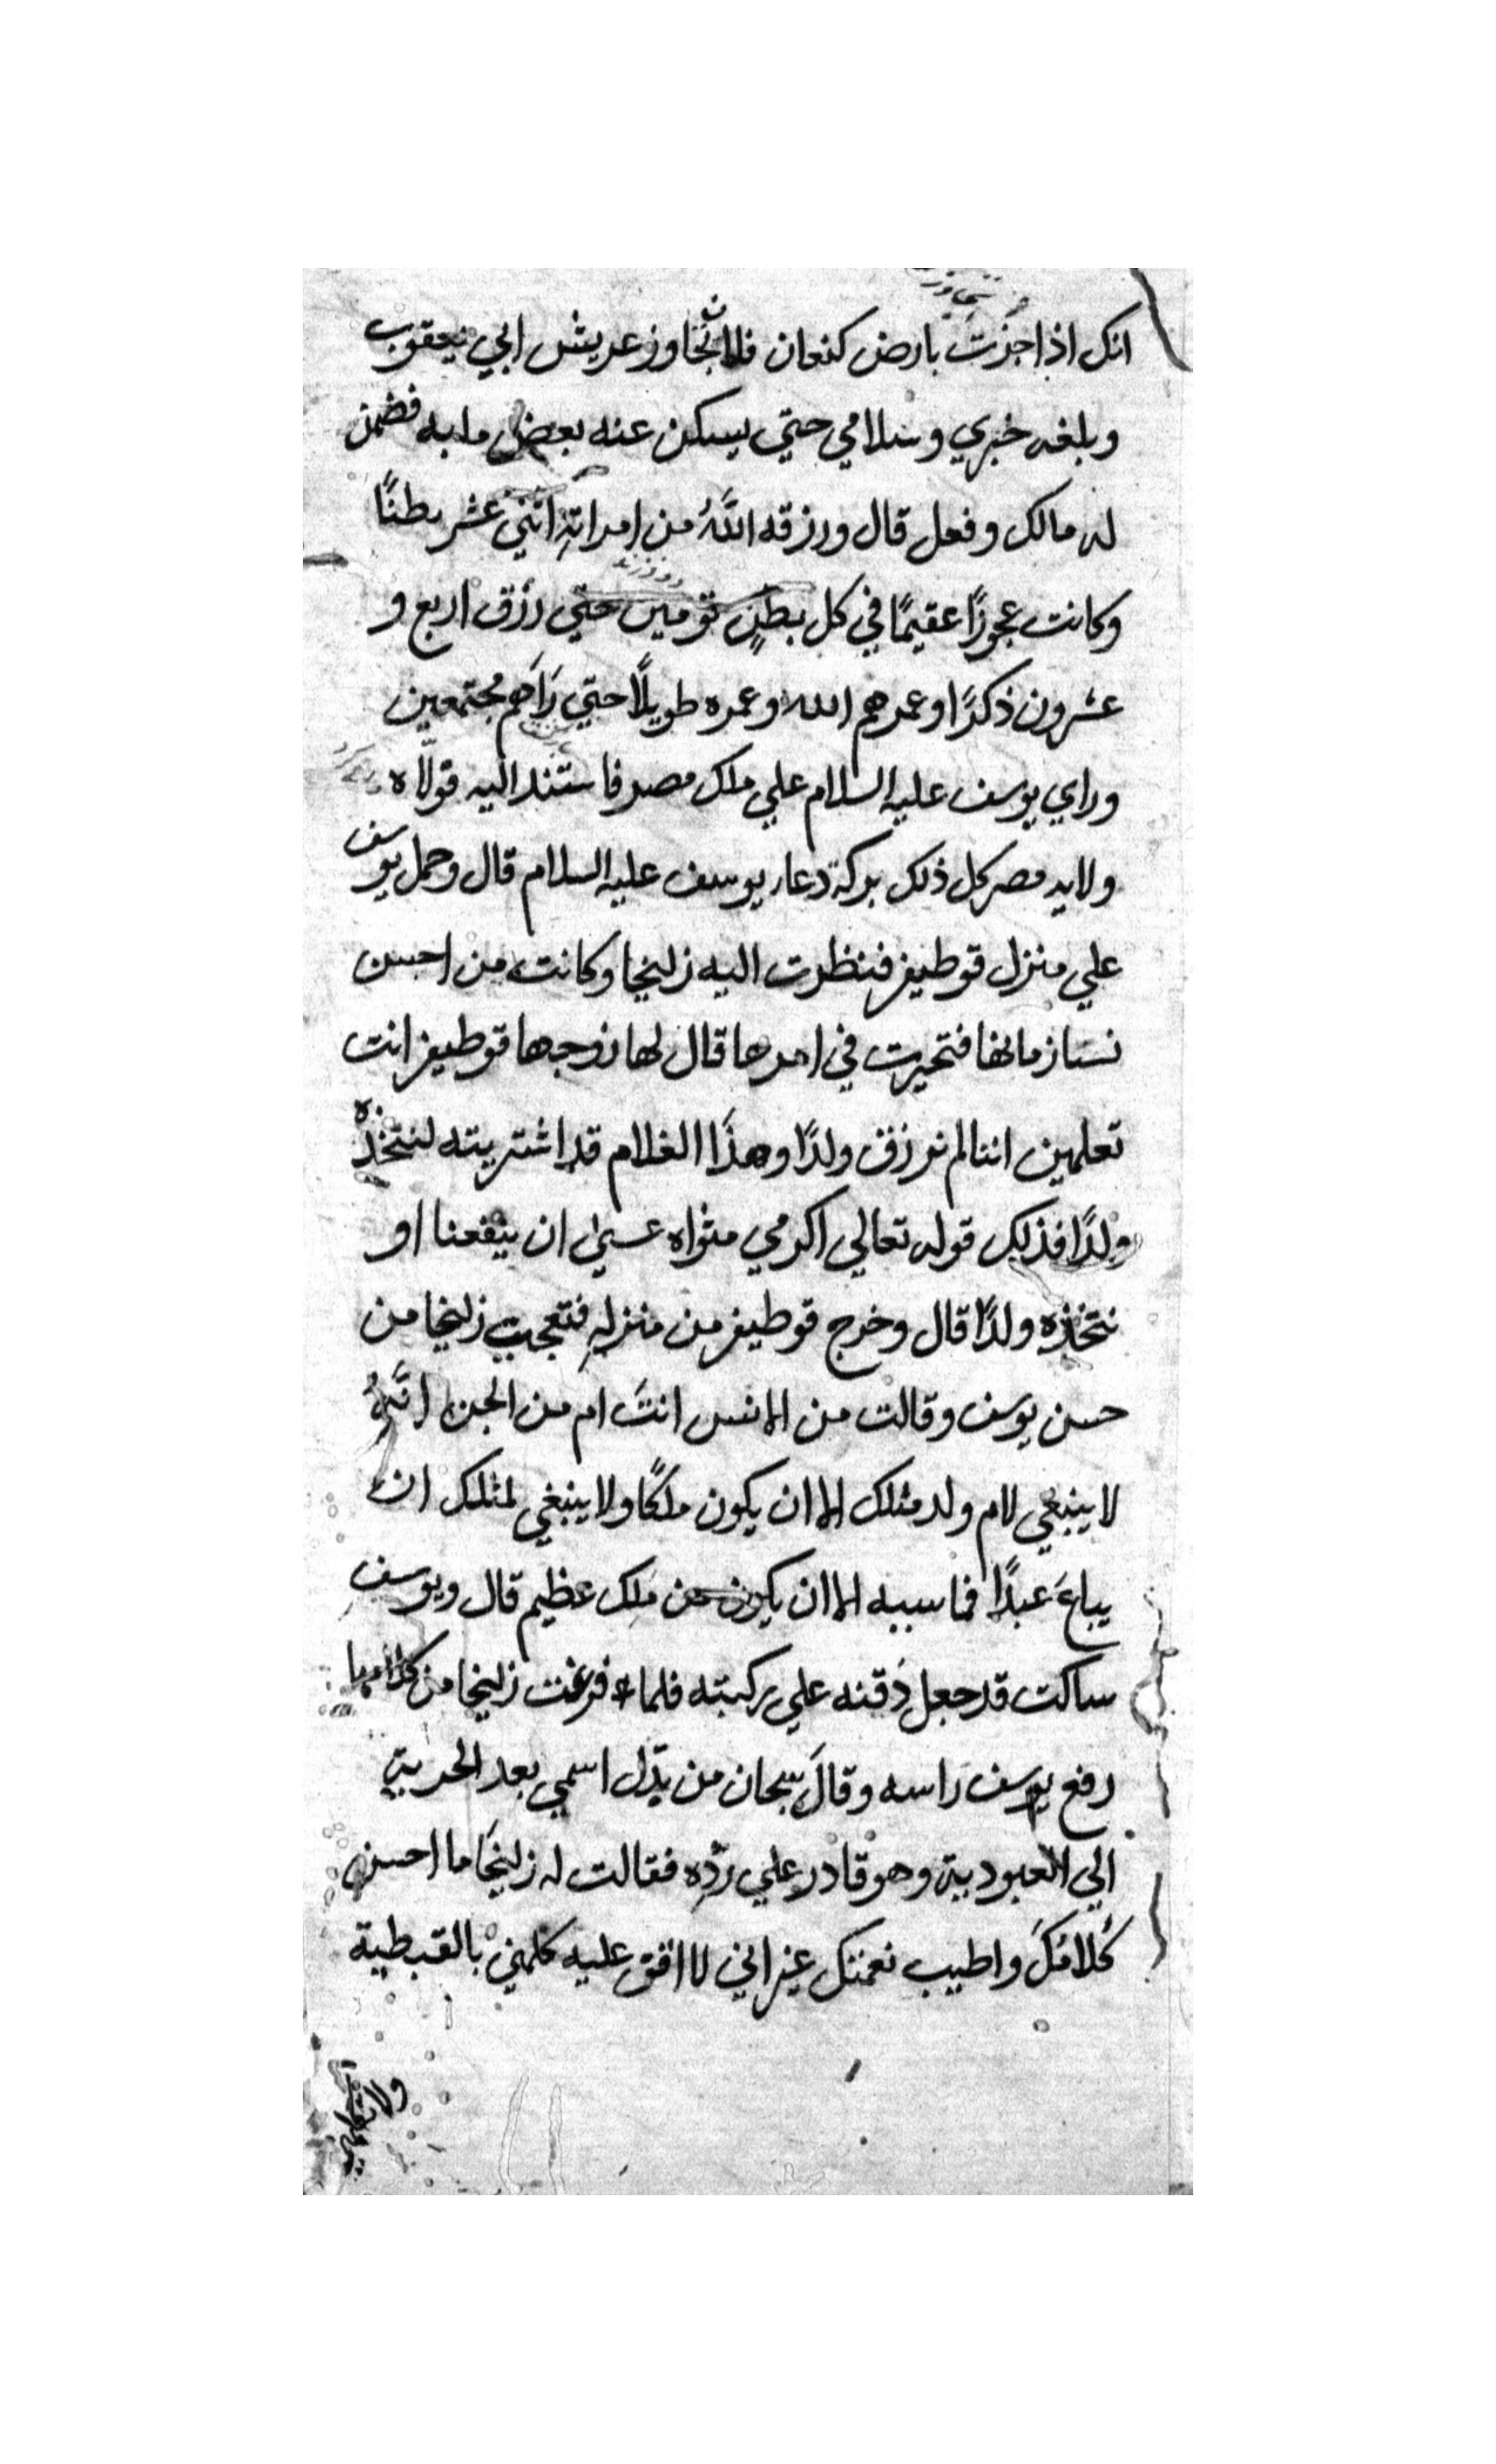 انك اذا جزت بارض كنعان فلا تجاوز عريش ابي يعقوب
وبلغه خبري وسلامي حتي يسكن عنه بعض ما به فضمن
له مالك وفعل قال ورزقه اللّٰه من امراته اثني عشر بطنًا
وكانت عجوزًا عقيمًا في كل بطنٍ تومين حتي رزق اربع و
عشرون ذكرًا وعمرهم الله وعمره طويلًا حتي رَاَهم مجتمعين
وراي يوسف عليه السلام علي ملك مصر فاستند اليه فولّاه
ولايه مصر كل ذلك بركة دعاء يوسف عليه السلام قال وحمل يوسف
علي منزل قوطيفر فنظرت اليه زليخا وكانت من احسن
نساء زمانها فتحيرت في امرها قال لها زوجها قوطيفر انت
تعلمين اننا لم نرزق ولدًا وهذَا الغلام قد اشتريته لنتخذه
ولدًا فذلك قوله تعالي اكرمي مثواه عسىٰ ان ينفعنا او
نتخذه ولدًا قال وخرج قوطيفر من منزلهِ فتعجبت زليخا من
حسن يوسف وقالت من الانس انتَ ام من الجن انّهُ
لا ينبغي لام ولد مثلك الا ان يكون ملكًا ولا ينبغي لمثلك ان
يباعَ عبدًا فما سبيه الا ان يكون من ملك عظيم قال ويوسف
ساكت قد جعل ذقنه علي ركبته فلما فرغت زليخا من كلامها
رفع يوسف رَاسه وقالَ سبحان من بدّل اسمي بعد الحرية
الي العبودية وهو قادر علي ردّهِ فقالت له زليخَا ما احسن
كَلامَكَ واطيب نغمتك غير اني لا افق عليه كلمني بالقبطية